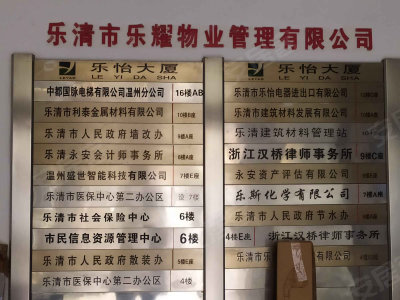 乐清市乐耀物业管理有限公司
乐怡大厦
LE YI DA SHA
中都国脉电梯有限公司温州分公司 16楼AB
乐清市利泰金属材料有限公司 10楼B座
乐清市人民政府墙改办 9楼A座
乐清永安会计师事务所 8楼A座
温州盛世智能科技有限公司 7楼E座
乐清市医保中心第二办公区 7楼
乐清市社会保险中心 6楼
市民信息资源管理中心 6楼
乐清市人民政府散装办 5楼E座
乐清市医保中心第二办公区 4楼
乐怡大厦
LE YI DA SHA
乐清市乐怡电器进出口有限公司
乐清市建筑材料发展有限公司
乐清建筑材料管理站
浙江汉桥律师事务所 9楼C座
永安资产评估有限公司
乐斯化学有限公司 7楼A座
乐清市人民政府节水办
4楼E座 浙江汉桥律师事务所
乐清市